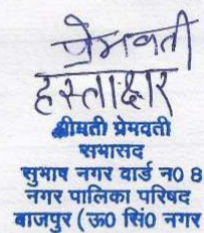 प्रेमवती
हस्ताक्षर
श्रीमती प्रेमवती
सभासद
सुभाष नगर वार्ड न0 8
नगर पालिका परिषद
बाजपुर (ऊ0 सिं0 नगर